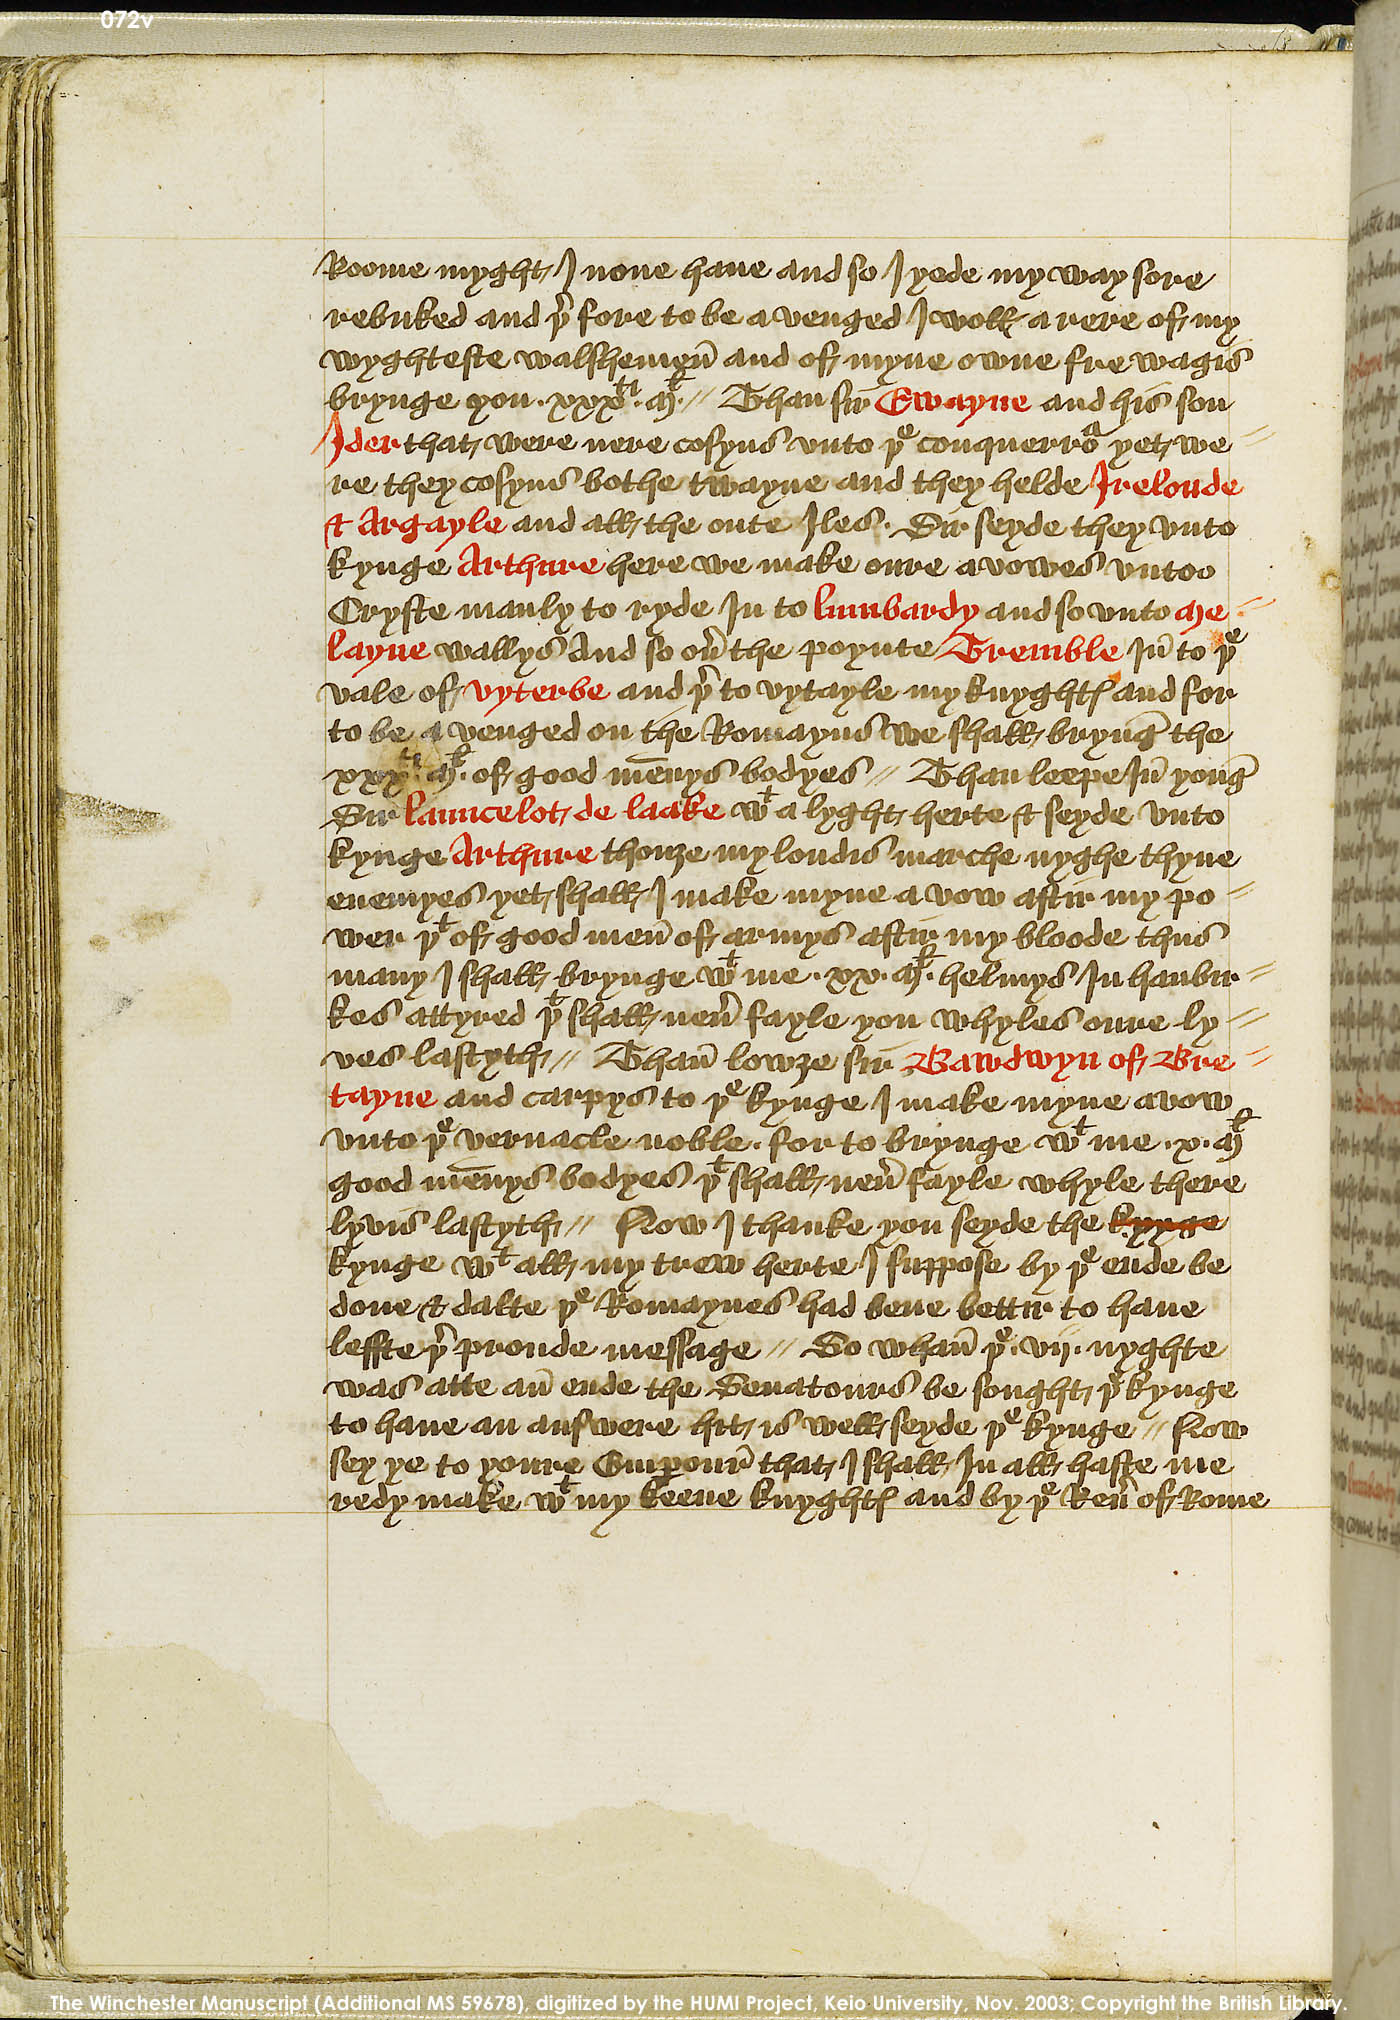 072v
Roome myght I none haue and so I yede my way sore
rebuked and þr fore to be a venged I woll a rere of my
wyghteste walshemen̄ and of myne owne fre wagis
brynge you . xxxti . Ml . // Than sir Ewayne and his son
Ider that were nere cosyns vnto þe conquerroa yet we =
re they cosyns bothe twayne and they helde Irelonde
& Argayle and all the oute Iles . Sir seyde they vnto
kynge Arthure here we make oure avowes vntoo
Cryste manly to ryde In to lumbardy and so vnto Me =
layne wallys And so on̄ the poynte Tremble In̄ to þe
vale of vyterbe and þr to vytayle my knyghtꝭ and for
to be a venged on the Romayns we shall brynḡ the
xxxti . Ml . of good men̄ys bodyes // Than leepe In̄ yonḡ
Sir launcelot de laake wt a lyght herte & seyde vnto
kynge Arthure thouȝe my londis marche nyghe thyne
enemyes yet shall I make myne a vow aftir my po =
wer þt of good men̄ of armys aftir my bloode thus
many I shall brynge wt me . xx . Ml . helmys In haubir =
kes attyred þt shall neū fayle you whyles oure ly =
ves lastyth // Than̄ lowȝe sir Bawdwyn of Bre =
tayne and carpys to þe kynge I make myne avow
vnto þe vernacle noble . for to brynge wt me . x . Ml
good men̄ys bodyes þt shall neū fayle whyle there
lyvis lastyth // Now I thanke you seyde the kynge
kynge wt all my trew herte I suppose by þe ende be
done & dalte þe Romaynes had bene bettir to haue
leffte þr proude message // So whan̄ þe . vij . nyghte
was atte an̄ ende the Senatours be sought þe kynge
to haue an answere hit is well seyde þe kynge // Now
sey ye to youre Empour̄ that I shall In all haste me
redy make wt my keene knyghtꝭ and by þe Reū of Rome
The Winchester Manuscript (Additional MS 59678), digitized by the HUMI Project, Keio University, Nov. 2003; Copyright the British Library.